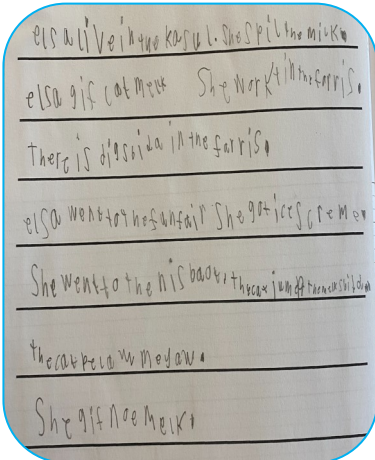 elsa live in the kasul. She spil the milk.
elsa gif cat melk She work in the forris.
there is digsbida in the farris.
elsa went to the funfair She got ice screme.
She went to the nis baot. the cat jum the melk spild
the cat meyaw.
She gif noe melk.